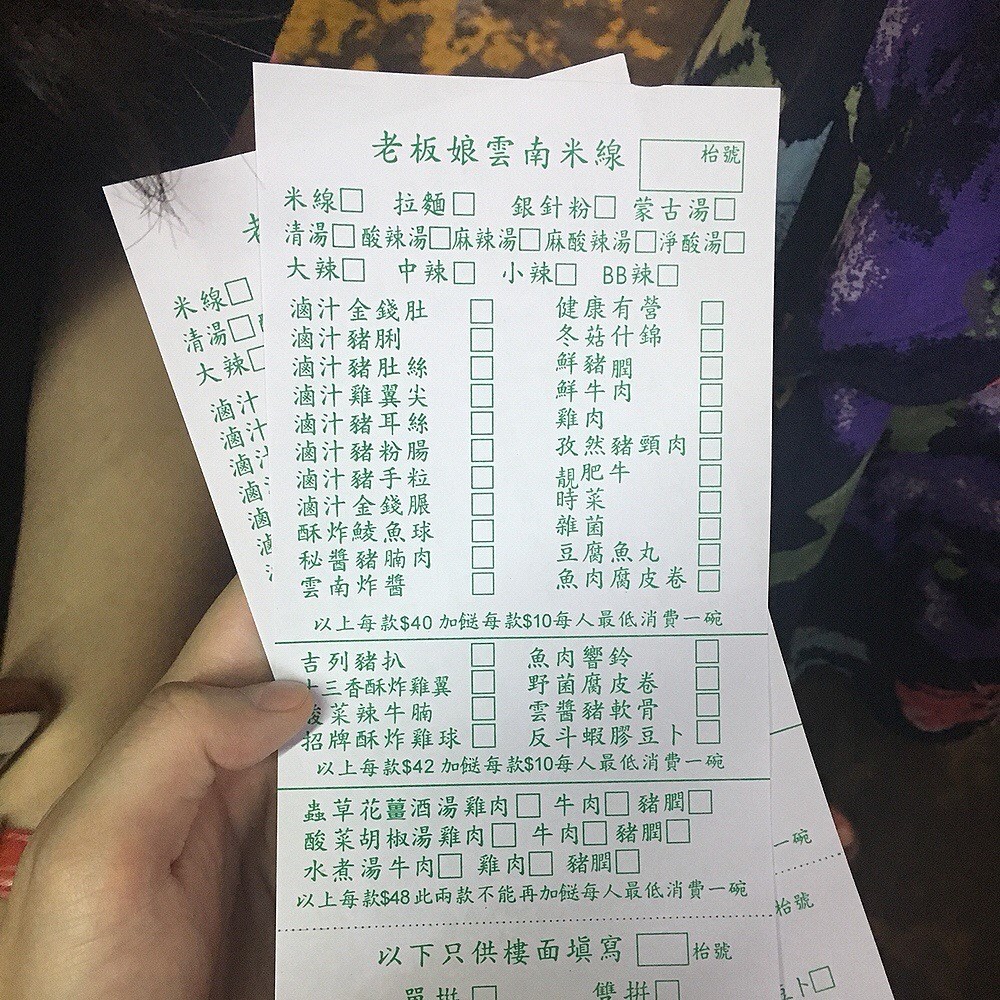 老板娘雲南米線 枱號
米線□ 拉麵□ 銀針粉□ 蒙古湯□
清湯□ 酸辣湯□ 麻辣湯□ 麻酸辣湯□ 淨酸湯□
大辣□ 中辣□ 小辣□ BB辣□
滷汁金錢肚 □ 健康有營 □
滷汁豬脷 □ 冬菇什錦 □
滷汁豬肚絲 □ 鮮豬膶 □
滷汁雞翼尖 □ 鮮牛肉 □
滷汁豬耳絲 □ 雞肉 □
滷汁豬粉腸 □ 孜然豬頸肉 □
滷汁豬手粒 □ 靚肥牛 □
滷汁金錢𦟌 □ 時菜 □
酥炸鯪魚球 □ 雜菌 □
秘醬豬腩肉 □ 豆腐魚丸 □
雲南炸醬 □ 魚肉腐皮卷 □
以上每款$40 加餸每款$10每人最低消費一碗
吉列豬扒 □ 魚肉響鈴 □
十三香酥炸雞翼 □ 野菌腐皮卷 □
酸菜辣牛腩 □ 雲醬豬軟骨 □
招牌酥炸雞球 □ 反斗蝦膠豆卜 □
以上每款$42 加餸每款$10每人最低消費一碗
蟲草花薑酒湯雞肉□ 牛肉□ 豬膶□
酸菜胡椒湯雞肉□ 牛肉□ 豬膶□
水煮湯牛肉□ 雞肉□ 豬膶□
以上每款$48此兩款不能再加餸每人最低消費一碗
以下只供樓面填寫 □ 枱號
單拼□ 雙拼□
老
米線□
清湯□
大辣□
滷汁
滷汁
滷汁
滷
滷
一碗
枱號
豆卜□